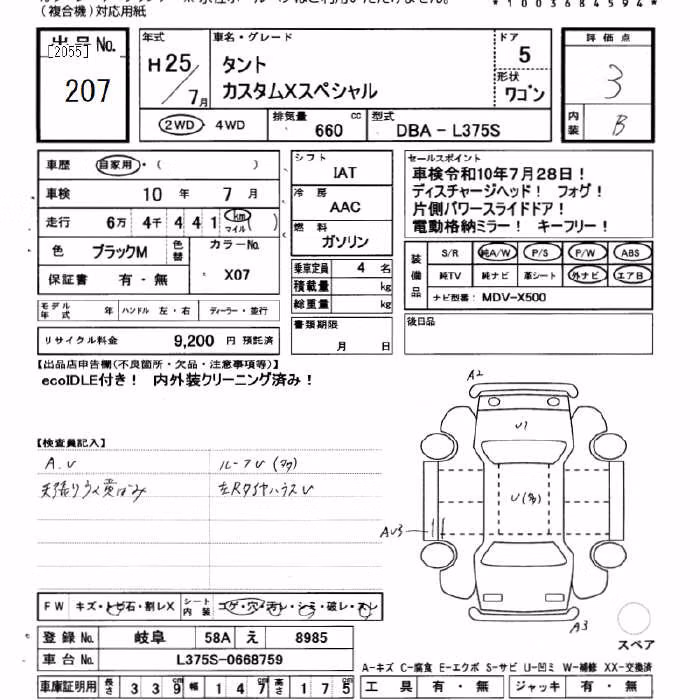 (複合機)対応用紙
*1003684594*
出品No. [2055]
207
年式 H25/7月
車名・グレード
タント
カスタムXスペシャル
ドア 5
形状 ワゴン
2WD・4WD
排気量 660 cc
型式 DBA-L375S
評価点 3
内装 B
車歴 自家用・( )
車検 10年 7月
走行 6万 4千 4 4 1 (km マイル)
色 ブラックM 色替
カラーNo. X07
保証書 有・無
モデル年式 年 ハンドル 左・右 ディーラー・並行
リサイクル料金 9,200 円 預託済
シフト
IAT
冷房
AAC
燃料
ガソリン
乗車定員 4 名
積載量 kg
総重量 kg
書類期限
月 日
セールスポイント
車検令和10年7月28日!
ディスチャージヘッド! フォグ!
片側パワースライドドア!
電動格納ミラー! キーフリー!
装備品
S/R 純A/W P/S P/W ABS
純TV 純ナビ 革シート 外ナビ エアB
ナビ型番: MDV-X500
後日品
【出品店申告欄(不良箇所・欠品・注意事項等)】
ecoIDLE付き! 内外装クリーニング済み!
【検査員記入】
A.U
ルーフU(多)
天張りウス黄ばみ
A2
U1
U(多)
AU3
A3
スペア
FW キズ・トビ石・割レX
シート内装 コゲ・穴・汚レ・シミ・破レ・スレ
登録No. 岐阜 58A え 8985
車台No. L375S-0668759
車庫証明用 長さ 339cm 幅 147cm 高さ 175cm
A-キズ C-腐食 E-エクボ S-サビ U-凹ミ W-補修 XX-交換済
工具 有・無 ジャッキ 有・無